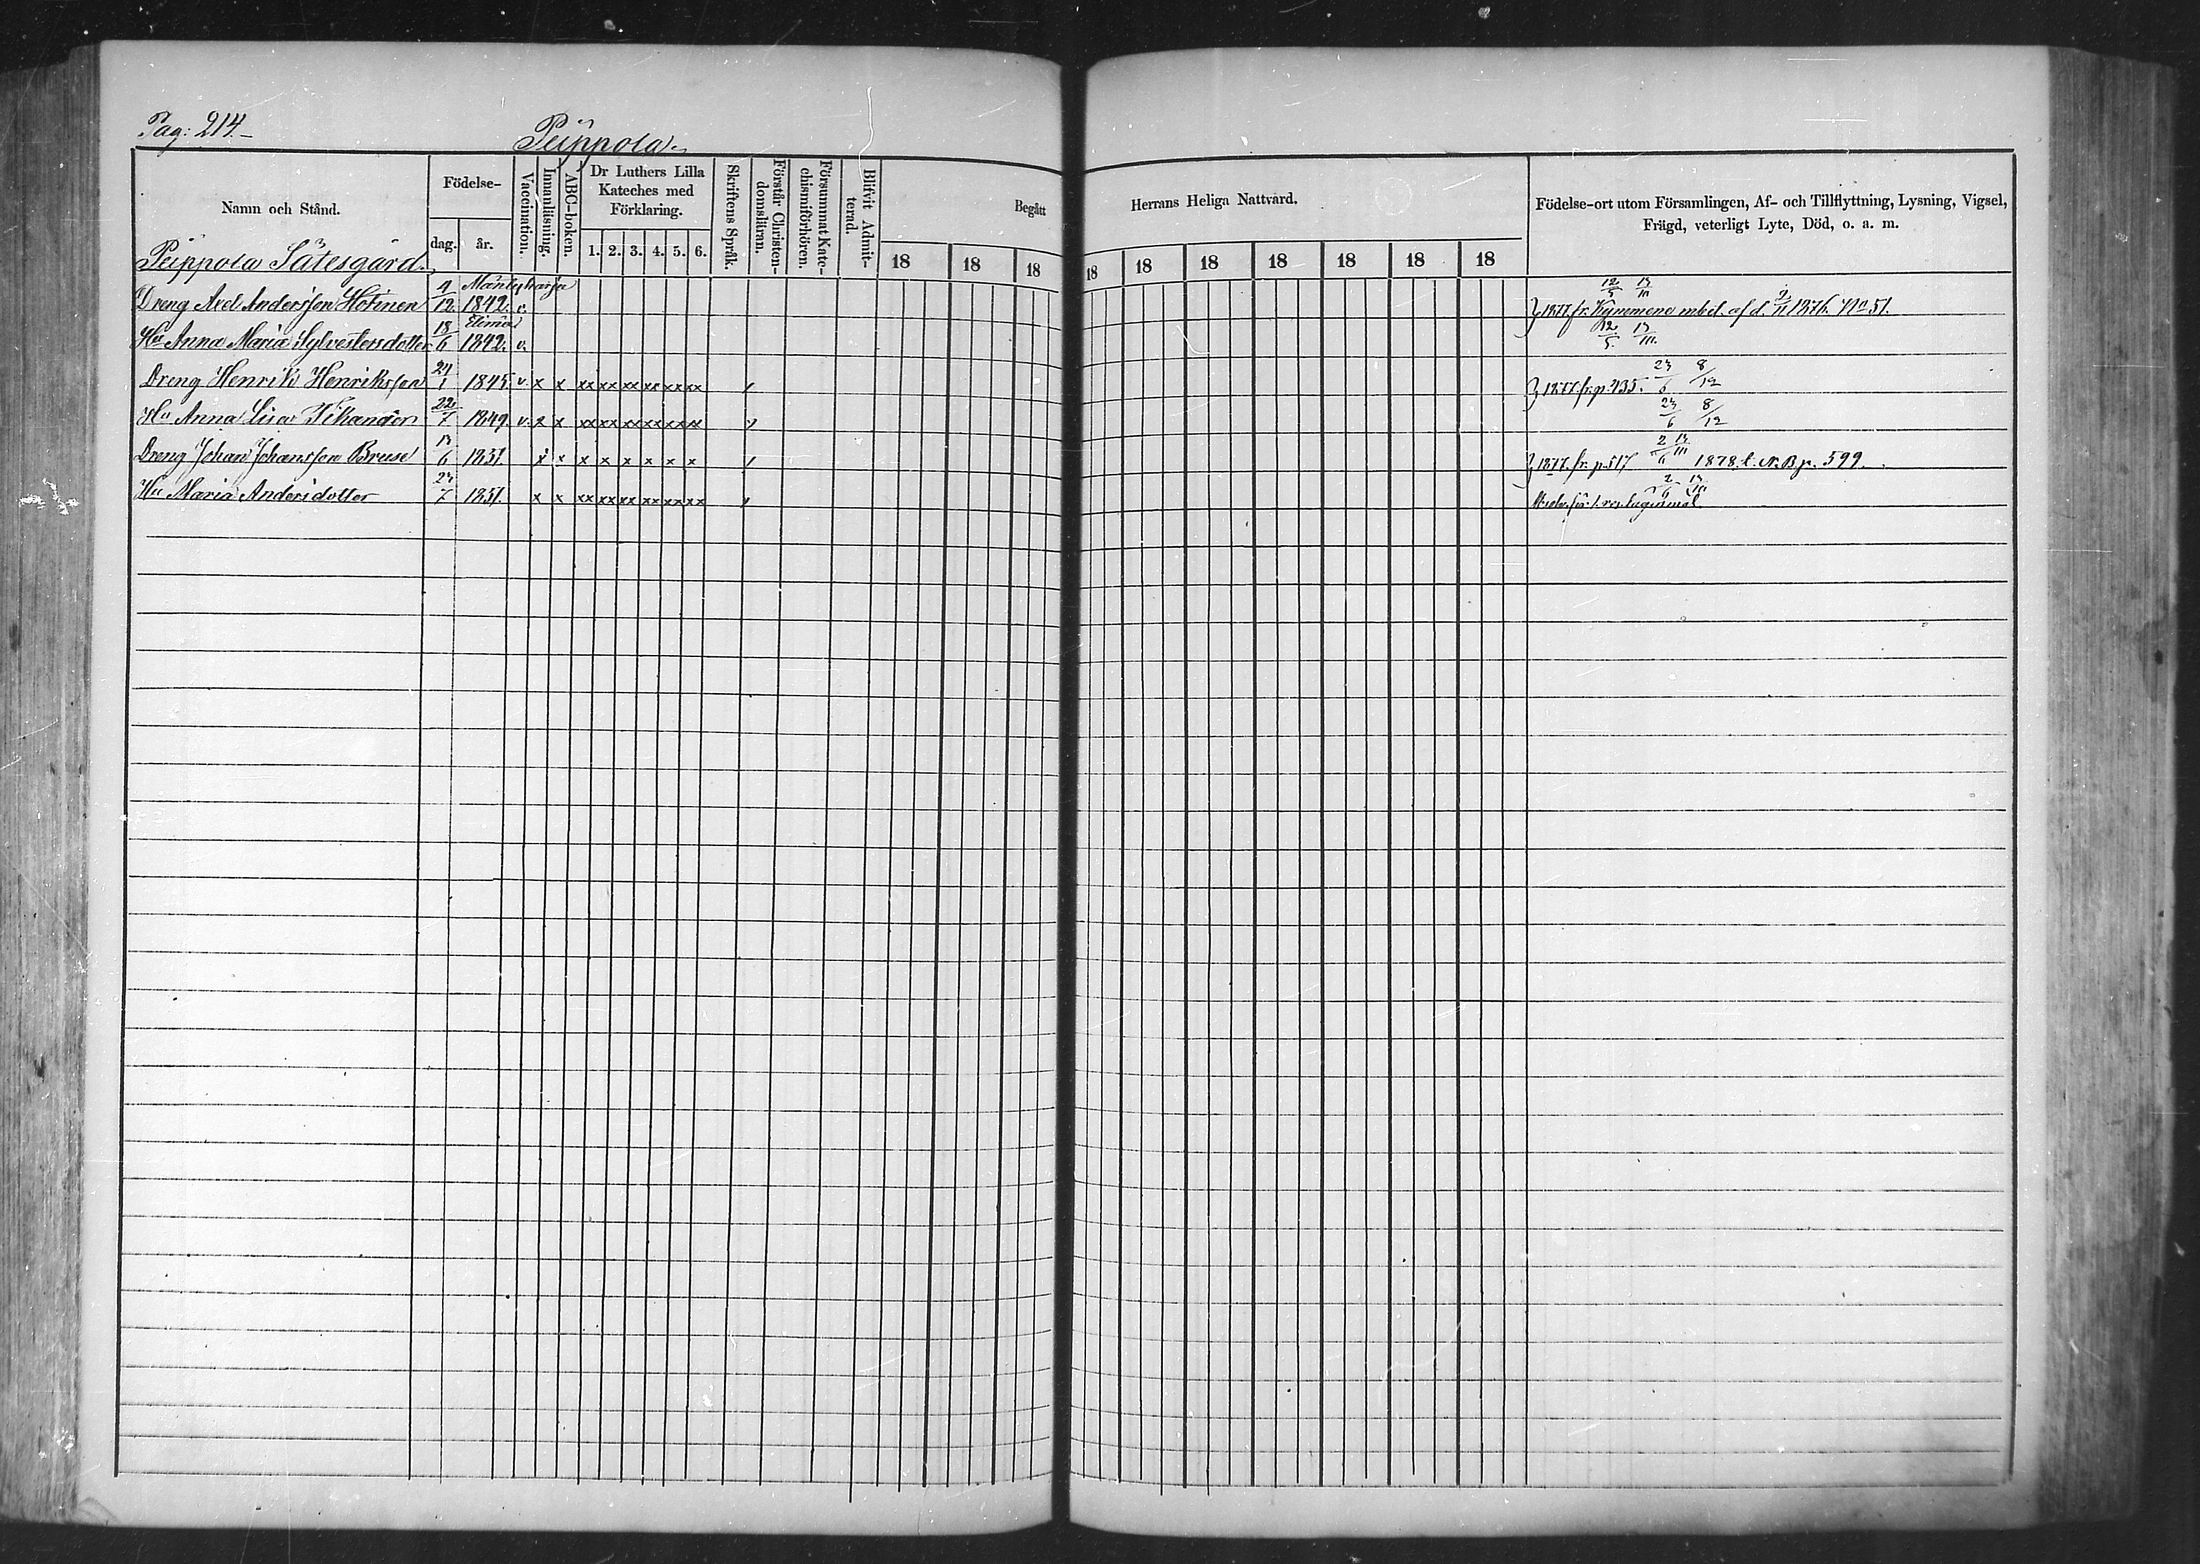 Pag: 214.
Peippola.
Namn och Stånd.
Födelse-
dag.
år.
Vaccination.
Innanläsning.
ABC-boken.
Dr Luthers Lilla
Kateches med
Förklaring.
1. 2. 3. 4. 5. 6.
Skriftens Språk.
Förstår Christen-
domsläran.
Försummat Kate-
chismiförhören.
Blifvit Admit-
terad.
Begått
Herrans Heliga Nattvard.
18 18 18 18 18 18 18 18 18 18
Födelse-ort utom Församlingen, Af- och Tillflyttning, Lysning, Vigsel,
Frägd, veterligt Lyte, Död, o. a. m.
Peippola Sätesgård.
Mäntyharju
Dreng Axel Andersson Hotinen 4/12 1842. v.
1877 fr. Kymmene m. bet. af d. 1876. No 51.
Elimä
Hu Anna Maria Sylvestersdotter 18/6 1842. v. 12/5
Dreng Henrik Henriksson 1845. v. x x xx xx xx xx xx xx 1877 fr. p. 435. 8/12
Hu Anna Lisa Tikander 22/7 1849. v. x x xx xx xx xx xx xx 8/12
Dreng Johan Johansson Bruse 1831. x x x x x x x x 1877. fr. p. 517 1878. t. N. B. p. 599.
Hu Maria Andersdotter 1831. x x xx xx xx xx xx xx